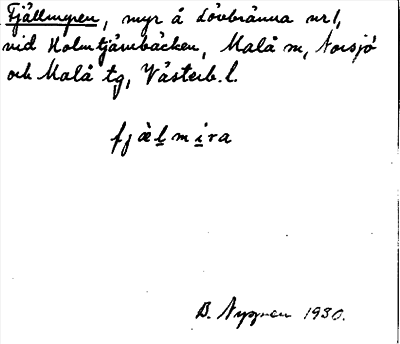 Fjällmyren, myr å Lövbränna nr 1,
vid Holmtjärnbäcken, Malå sn, Norsjö
och Malå tg, Västerb. l.
fjæ̀l̲mi̲ra
B. Nyman 1930.